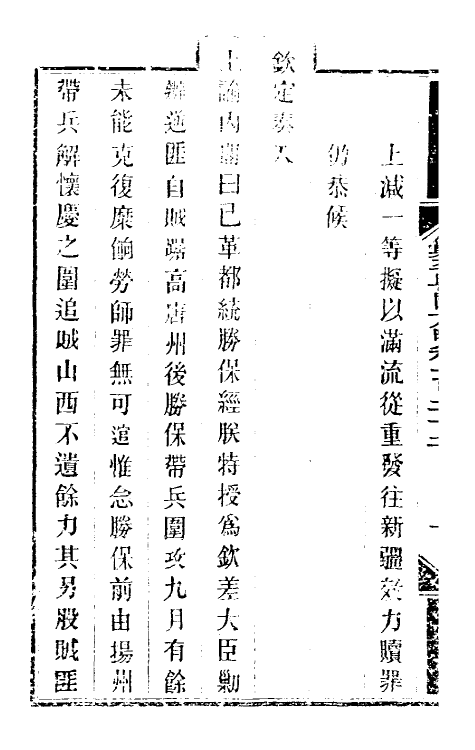 上減一等擬以滿流從重發往新疆效力贖罪
仍恭候
欽定奏入
上諭內閣曰已革都統勝保經朕特授為欽差大臣勦
辦逆匪自賊踞高唐州後勝保帶兵圍攻九月有餘
未能克復糜餉勞師罪無可逭惟念勝保前由揚州
帶兵解懷慶之圍追賊山西不遺餘力其另股賊匪